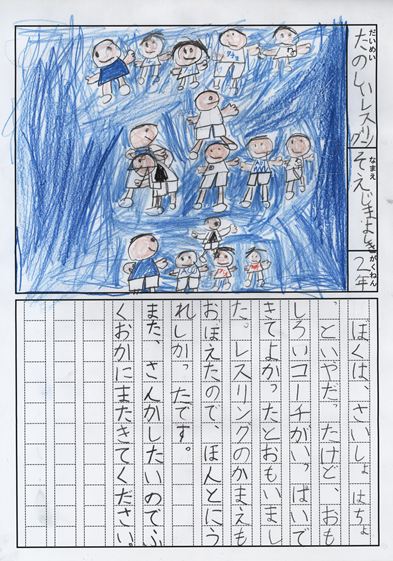 だいめい
たのしいレスリン
なまえ
そえじまよし
がくねん
2年
ぼくは、さいしょはちょ
っといやだったけど、おも
しろいコーチがいっぱいで
きてよかったとおもいまし
た。レスリングのかまえも
おぼえたので、ほんとにう
れしかったです。
また、さんかしたいのでふ
くおかにまたきてください。